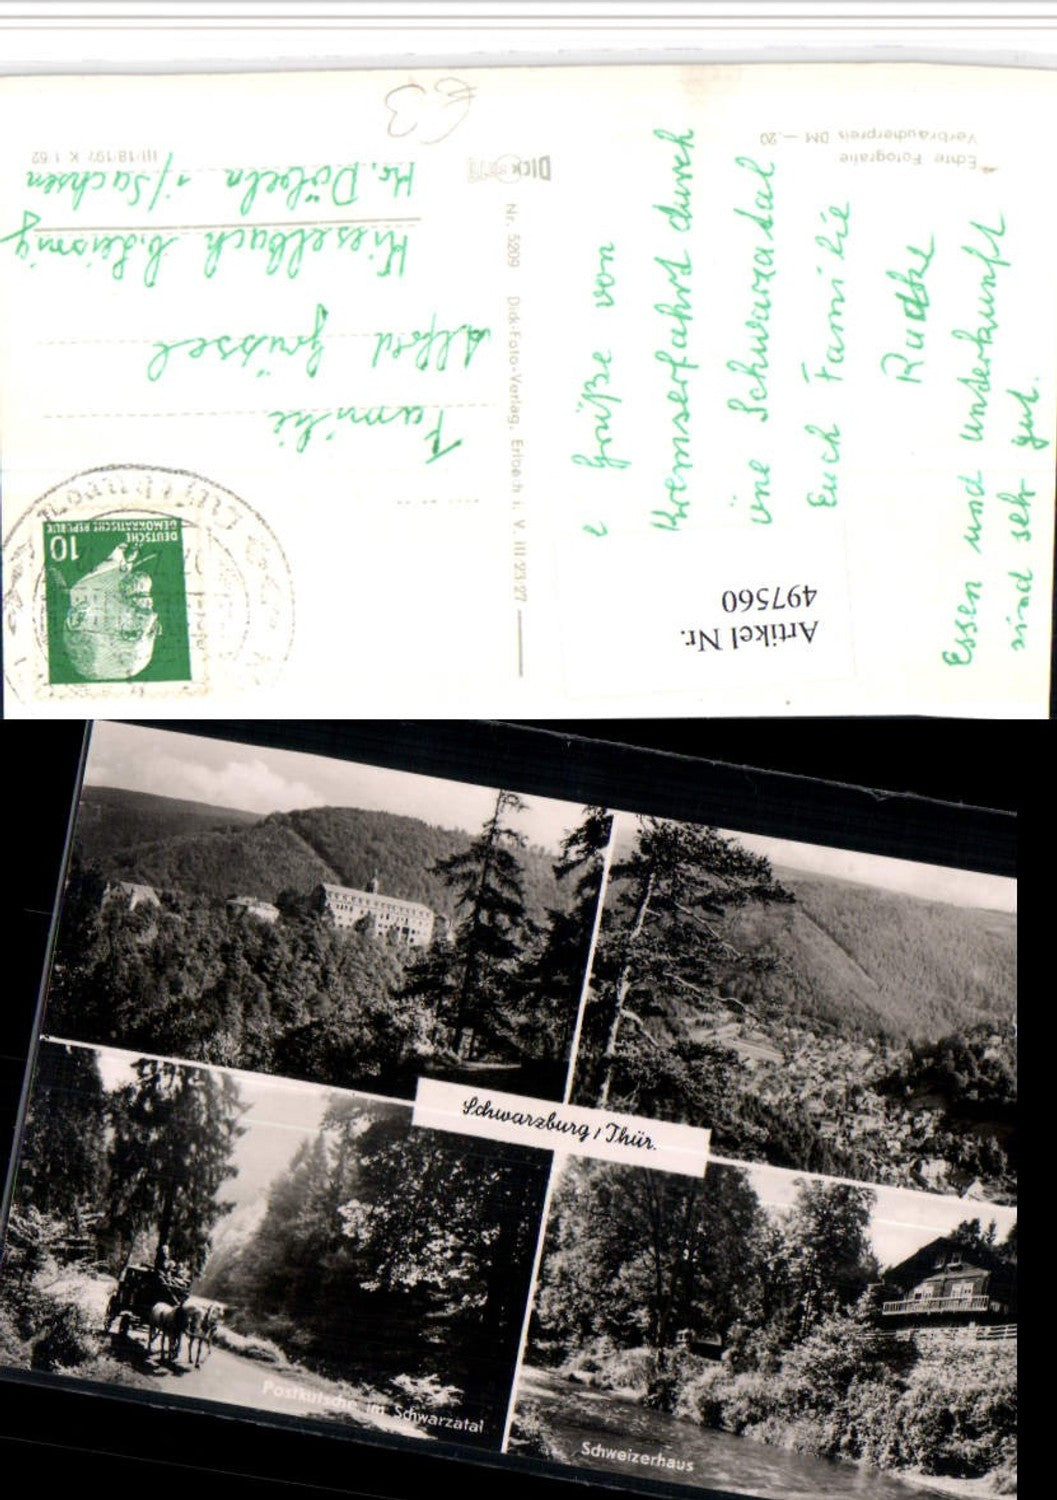 Echte Fotografie
Verbraucherpreis DM —.20
III/18/197 K 1/62
€3
DICK
Nr. 5209 Dick-Foto-Verlag, Erlbach i. V. III 23 27
Grüße von
Kremserfahrt durch
Schwarzatal
Euch Familie
Radtke
Essen und Unterkunft
sind sehr gut.
Familie
Alfred
Kieselbach
Kr. Döbeln i/Sachsen
DEUTSCHE
DEMOKRATISCHE REPUBLIK
10
Artikel Nr.
497560
Schwarzburg / Thür.
Postkutsche im Schwarzatal
Schweizerhaus